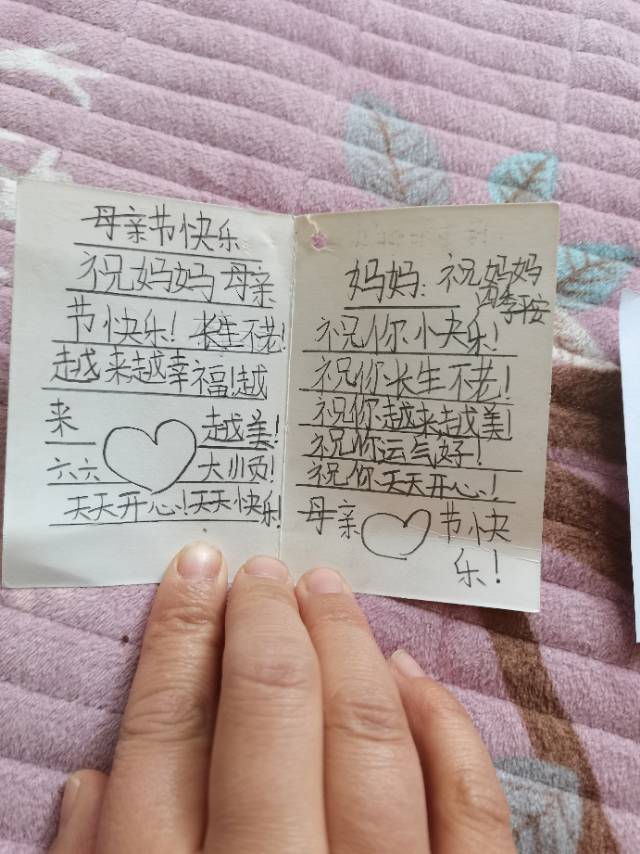 母亲节快乐
祝妈妈母亲
节快乐！长生不老！
越来越幸福！越
来 越美！
六六 大顺！
天天开心！天天快乐！
妈妈：祝妈妈
四季平安
祝你快乐！
祝你长生不老！
祝你越来越美！
祝你运气好！
祝你天天开心！
母亲 节快
乐！